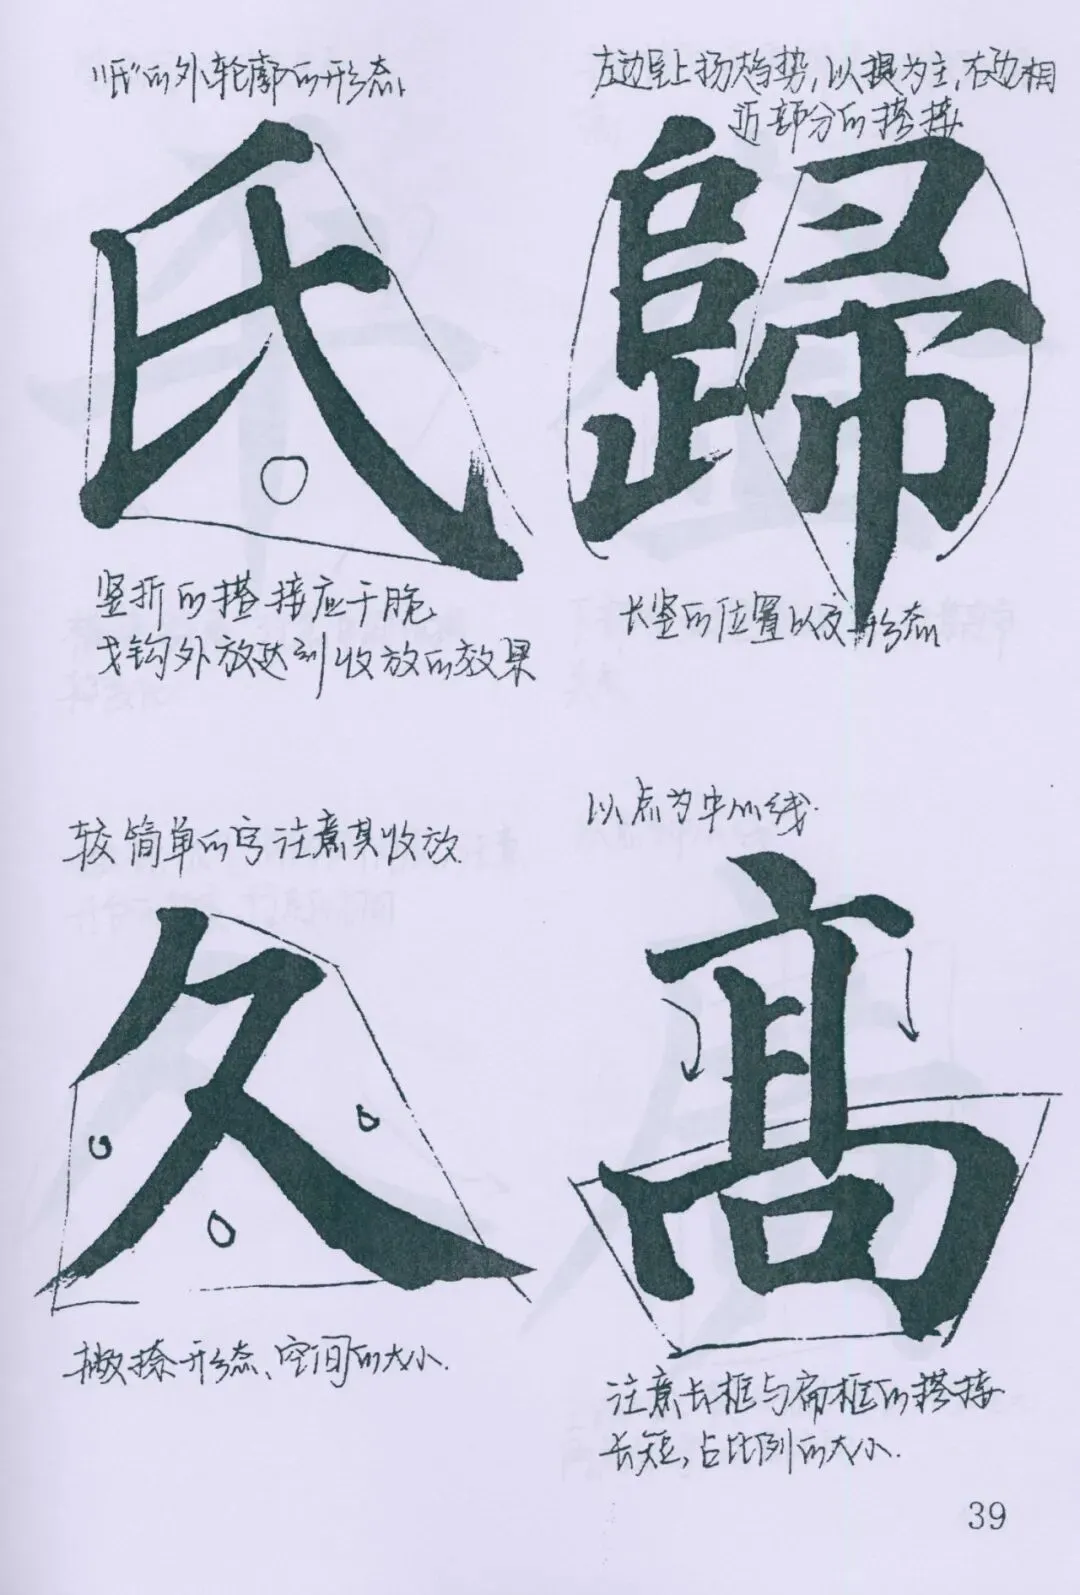 "氏"的外轮廓的形态
氏
竖折的搭接应干脆
戈钩外放达到收放的效果
左边呈上扬趋势,以提为主,右边相
近部分的搭接
歸
长竖的位置以及形态
较简单的字注意其收放
久
撇捺形态、空间的大小.
以点为中心线.
髙
注意长框与扁框的搭接
长短,占比例的大小.
39